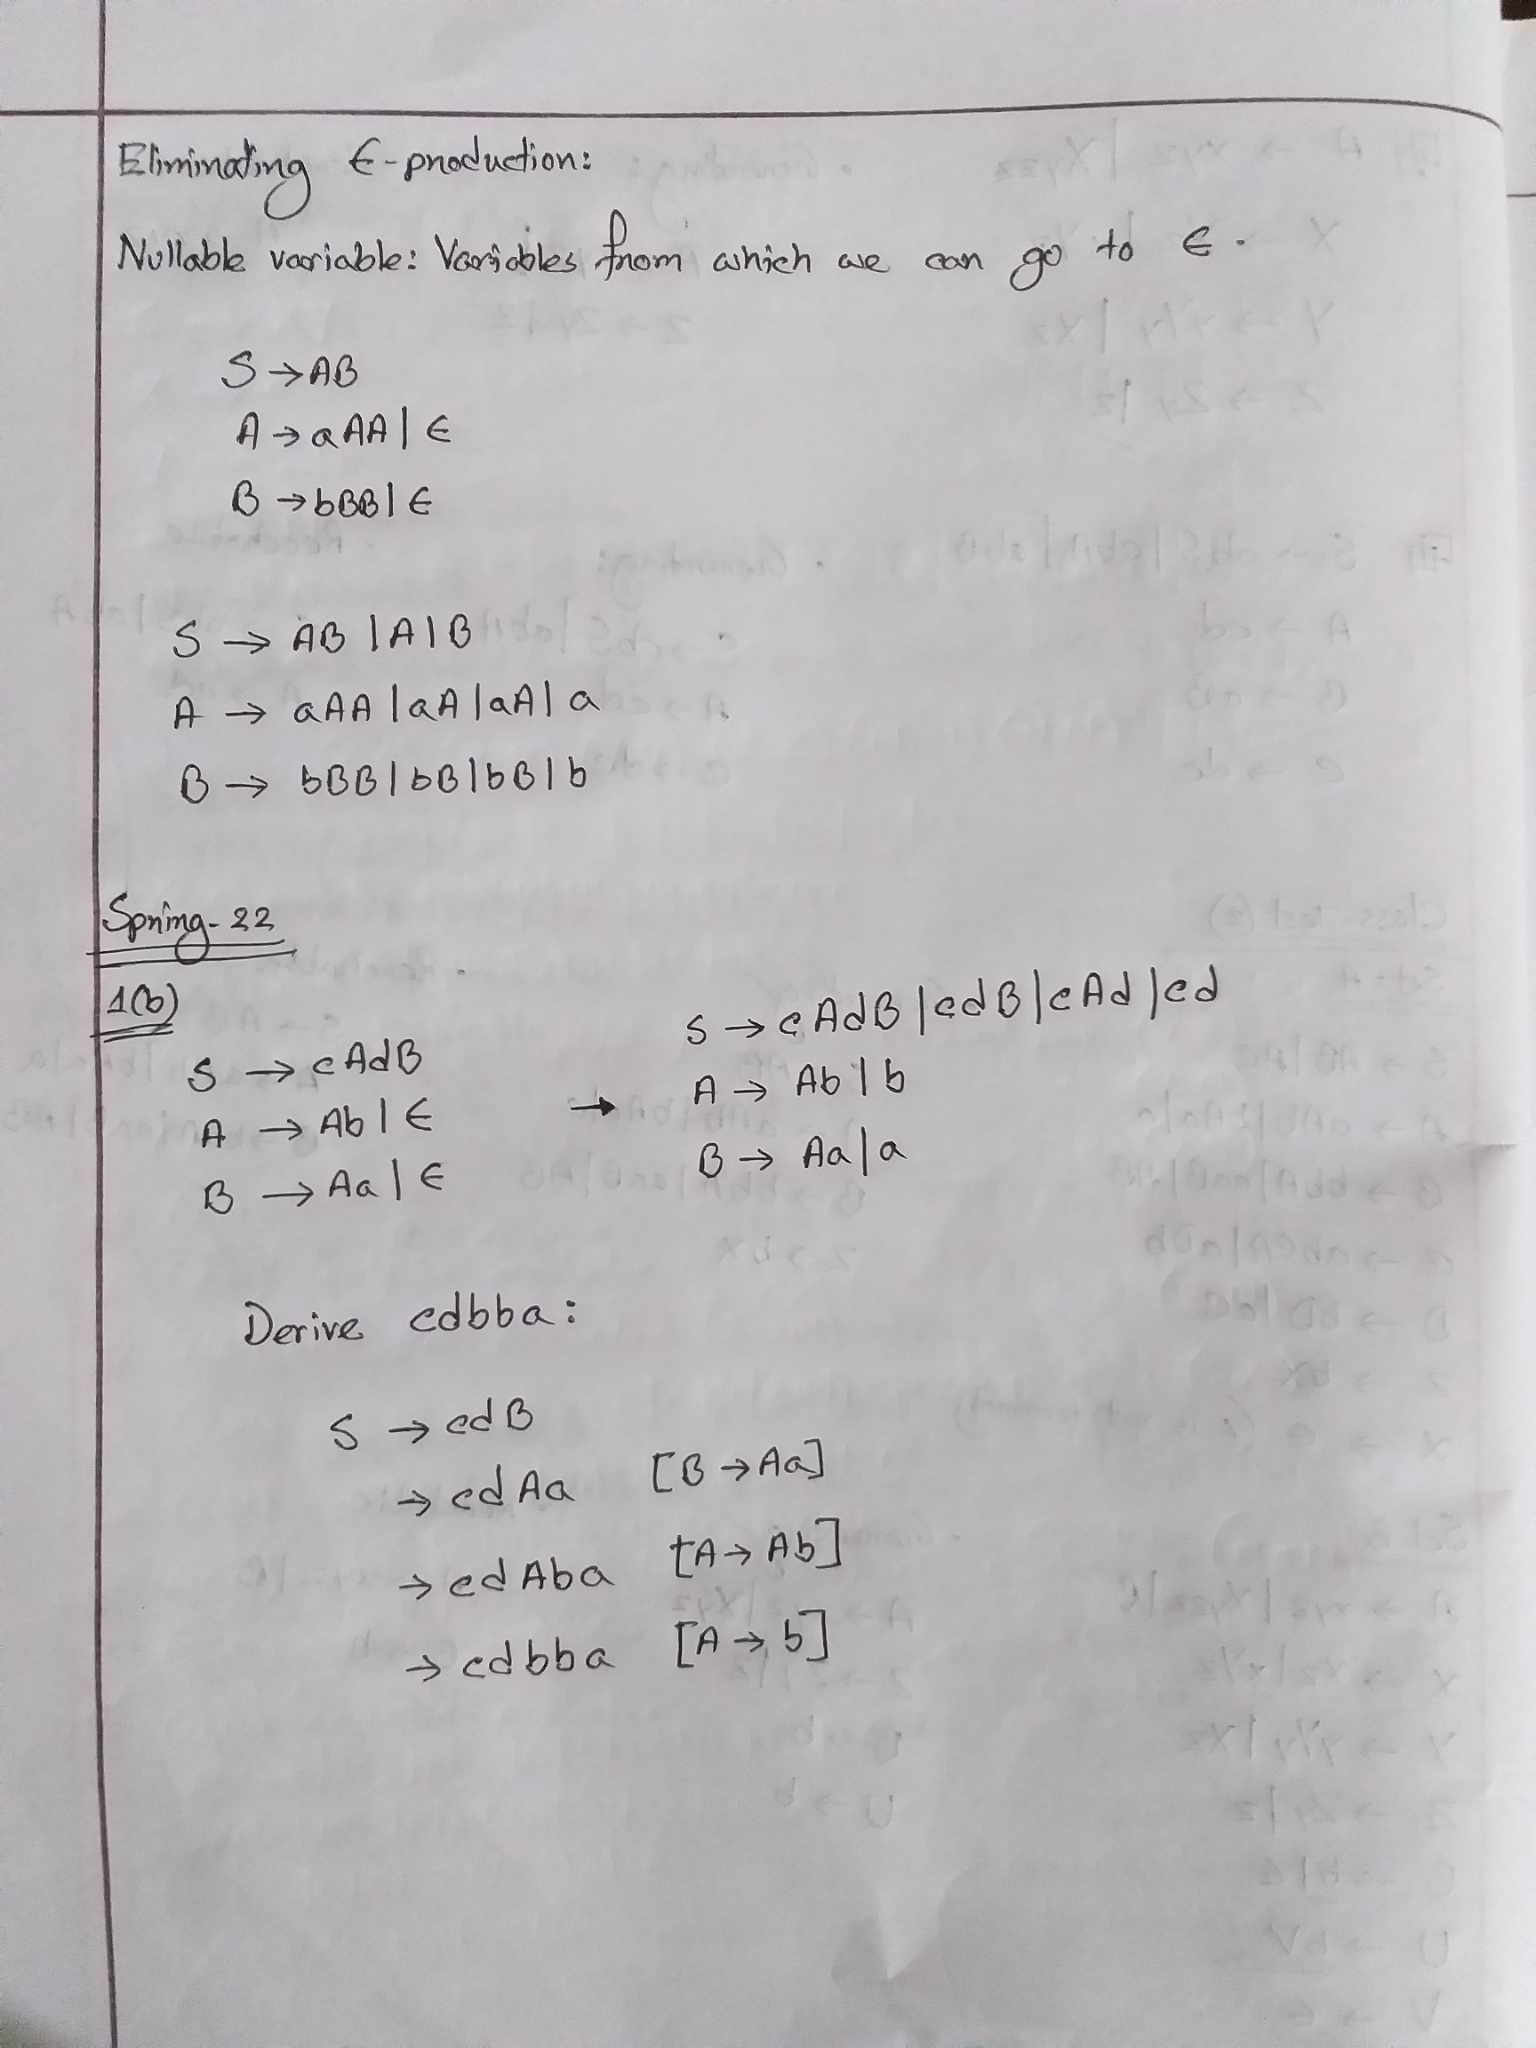 Eliminating ϵ-production:
Nullable variable: Variables from which we can go to ϵ.
S → AB
A → aAA | ϵ
B → bBB | ϵ
S → AB | A | B
A → aAA | aA | aA | a
B → bBB | bB | bB | b
Spring-22
1(b)
S → cAdB
A → Ab | ϵ
B → Aa | ϵ
→
S → cAdB | cdB | cAd | cd
A → Ab | b
B → Aa | a
Derive cdbba:
S → cdB
→ cdAa [B → Aa]
→ cdAba [A → Ab]
→ cdbba [A → b]